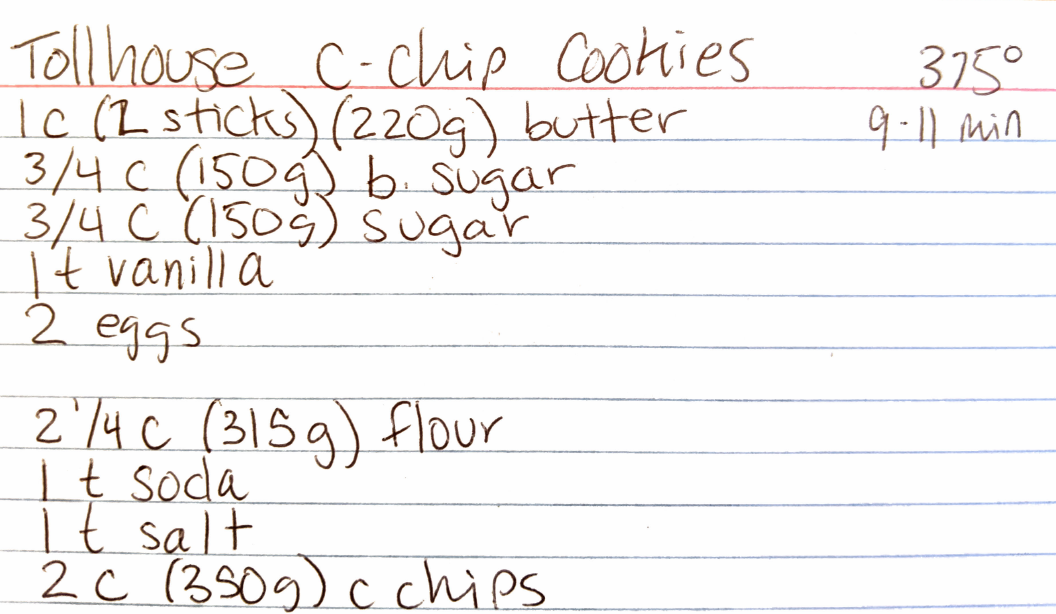 Tollhouse C-chip Cookies 375°
1c (2 sticks) (220g) butter 9-11 min
3/4 c (150g) b. sugar
3/4 C (150g) sugar
1 t vanilla
2 eggs
2 1/4 c (315g) flour
1 t soda
1 t salt
2 c (350g) c chips